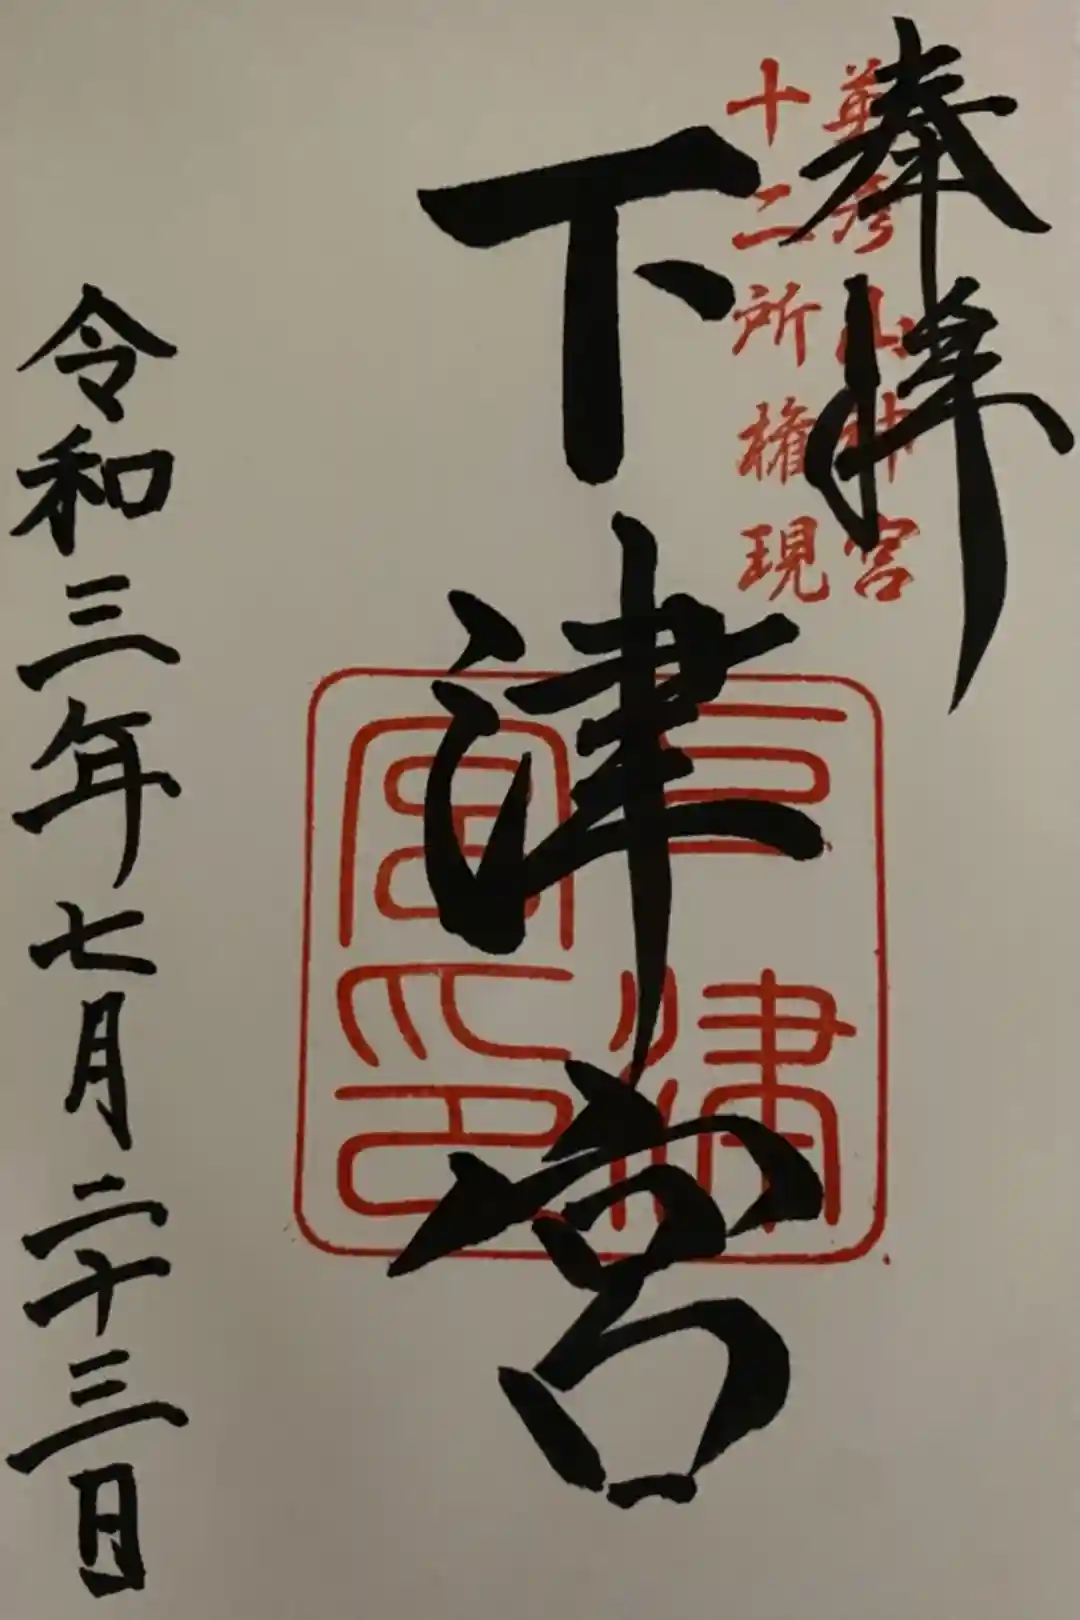 奉拝
英彦山神宮
十二所権現
下津宮
下津宮印
令和三年七月二十三日